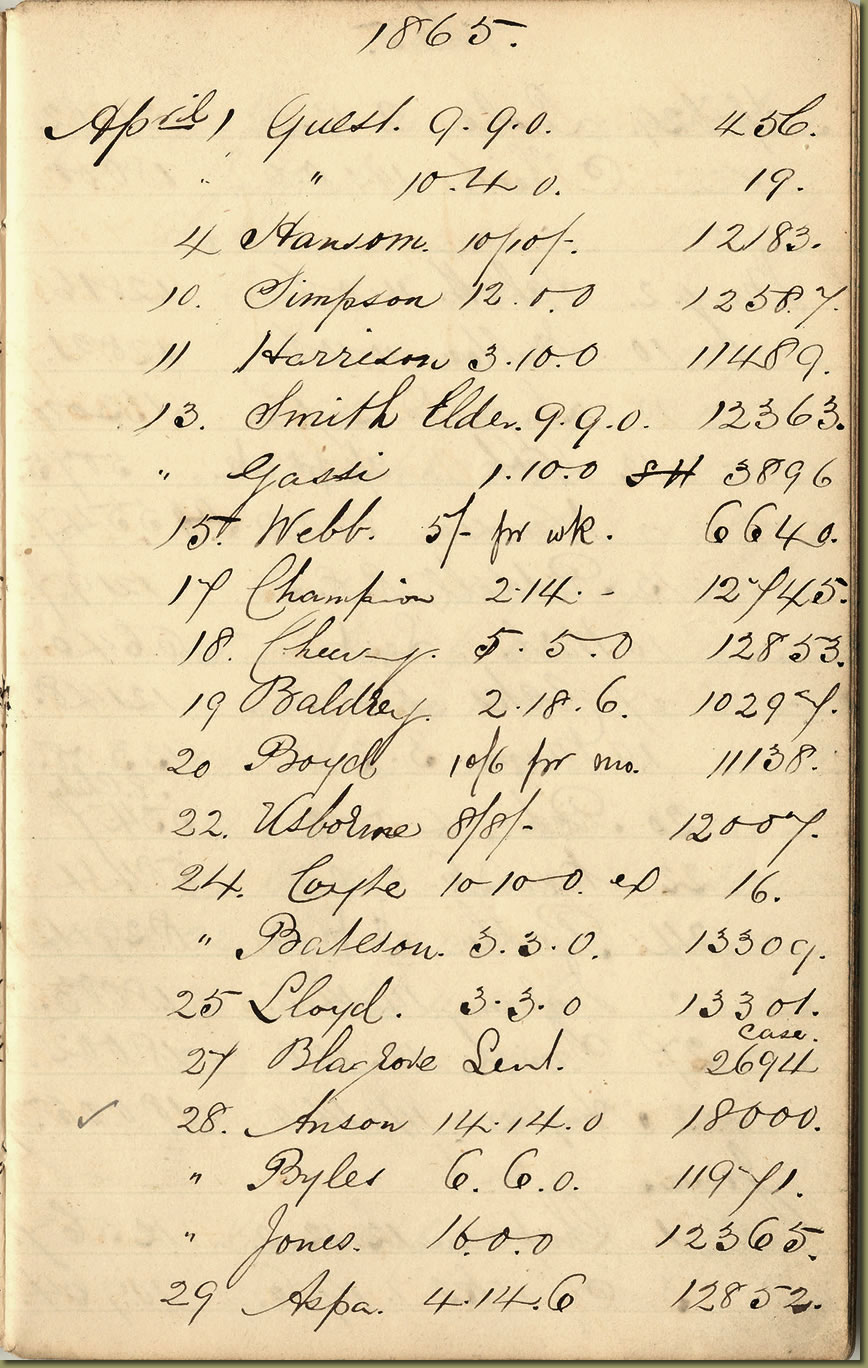 1865.
April 1 Guest. 9.9.0. 456.
" " 10.4 0. 19.
4 Hansom. 10/10/-. 12183.
10. Simpson 12.0.0 12587.
11 Harrison 3.10.0 11489.
13. Smith Elder. 9.9.0. 12363.
" Gassi 1.10.0 3896
15. Webb. 5/- pr wk. 6640.
17 Champion 2.14. - 12745.
18. 5.5.0 12853.
19 Baldrey. 2.18.6. 10297.
20 Boyd 10/6 pr mo. 11138.
22. Usborne 8/8/- 12007.
24. 10-10-0. 16.
" Bateson. 3.3.0. 13309.
25 Lloyd. 3.3.0 13301.
case.
27 Blagrove Lent. 2694
28. Anson 14.14.0 18000.
" Byles 6.6.0. 11971.
" Jones. 16.0.0 12365.
29 Aspa. 4.14.6 12852.